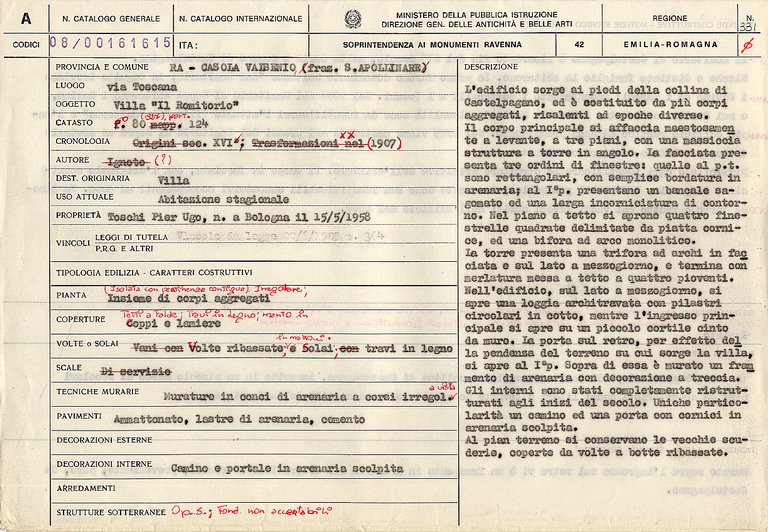 A
N. CATALOGO GENERALE
N. CATALOGO INTERNAZIONALE
MINISTERO DELLA PUBBLICA ISTRUZIONE
DIREZIONE GEN. DELLE ANTICHITÀ E BELLE ARTI
REGIONE
N.
331
CODICI
08/00161615
ITA:
SOPRINTENDENZA AI MONUMENTI RAVENNA
42
EMILIA-ROMAGNA
PROVINCIA E COMUNE RA - CASOLA VALSENIO (fraz. S.APOLLINARE)
LUOGO via Toscana
OGGETTO Villa "Il Romitorio"
CATASTO F. 80 mapp. 124
CRONOLOGIA Origini sec. XVI°; Trasformazioni nel (1907)
AUTORE Ignoto (?)
DEST. ORIGINARIA Villa
USO ATTUALE Abitazione stagionale
PROPRIETÀ Toschi Pier Ugo, n. a Bologna il 15/5/1958
VINCOLI
LEGGI DI TUTELA
P.R.G. E ALTRI
TIPOLOGIA EDILIZIA - CARATTERI COSTRUTTIVI
PIANTA Insieme di corpi aggregati
COPERTURE Tetti a falde; Travi in legno; manto in
Coppi e lamiere
VOLTE o SOLAI Vani con Volte ribassate e Solai con travi in legno
SCALE Di servizio
TECNICHE MURARIE Murature in conci di arenaria a corsi irregol. a vista
PAVIMENTI Ammattonato, lastre di arenaria, cemento
DECORAZIONI ESTERNE
DECORAZIONI INTERNE Camino e portale in arenaria scolpita
ARREDAMENTI
STRUTTURE SOTTERRANEE Op. S.; Fond. non accertabili
DESCRIZIONE
L'edificio sorge ai piedi della collina di
Castelpagano, ed è costituito da più corpi
aggregati, risalenti ad epoche diverse.
Il corpo principale si affaccia maestosamen
te a levante, a tre piani, con una massiccia
struttura a torre in angolo. La facciata pre-
senta tre ordini di finestre: quelle al p.t.
sono rettangolari, con semplice bordatura in
arenaria; al I°p. presentano un bancale sa-
gomato ed una larga incorniciatura di contor-
no. Nel piano a tetto si aprono quattro fine-
strelle quadrate delimitate da piatta corni-
ce, ed una bifora ad arco monolitico.
La torre presenta una trifora ad archi in fac
ciata e sul lato a mezzogiorno, e termina con
merlatura mossa a tetto a quattro pioventi.
Nell'edificio, sul lato a mezzogiorno, si
apre una loggia architravata con pilastri
circolari in cotto, mentre l'ingresso prin-
cipale si apre su un piccolo cortile cinto
da muro. La porta sul retro, per effetto del
la pendenza del terreno su cui sorge la villa,
si apre al I°p. Sopra di essa è murato un fram
mento di arenaria con decorazione a treccia.
Gli interni sono stati completamente ristrut-
turati agli inizi del secolo. Uniche partico-
larità un camino ed una porta con cornici in
arenaria scolpita.
Al pian terreno si conservano le vecchie scu-
derie, coperte da volte a botte ribassate.